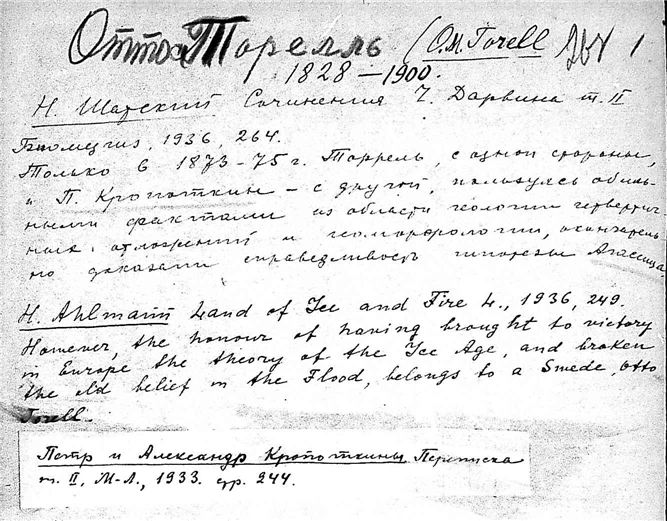 Отто Торелль (O.M. Torell 264 1
1828–1900.
Н. Шатский Сочинения Ч. Дарвина т. II
Биомедгиз, 1936, 264.
Только в 1873–75 г. Торрель, с одной стороны,
и П. Кропоткин – с другой, пользуясь обиль-
ными фактами из области геологии четвертич
ных отложений и геоморфологии, окончатель
но доказали справедливость гипотезы Агассица.
H. Ahlmann Land of Ice and Fire L., 1936, 249.
However, the honour of having brought to victory
in Europe the theory of the Ice Age, and broken
the old belief in the Flood, belongs to a Swede, Otto
Torell.
Петр и Александр Кропоткины Переписка
т. II, М-Л., 1933. стр. 244.